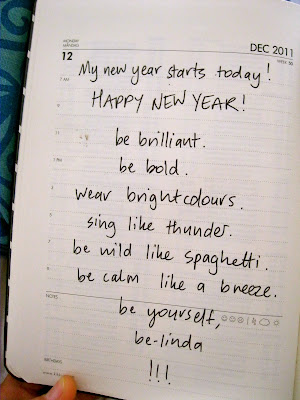 MONDAY
MÅNDAG
DEC 2011
12
My new year starts today!
HAPPY NEW YEAR!
be brilliant.
be bold.
wear bright colours.
sing like thunder.
be wild like spaghetti.
be calm like a breeze.
NOTES
be yourself,
be-linda
!!!
BIRTHDAYS